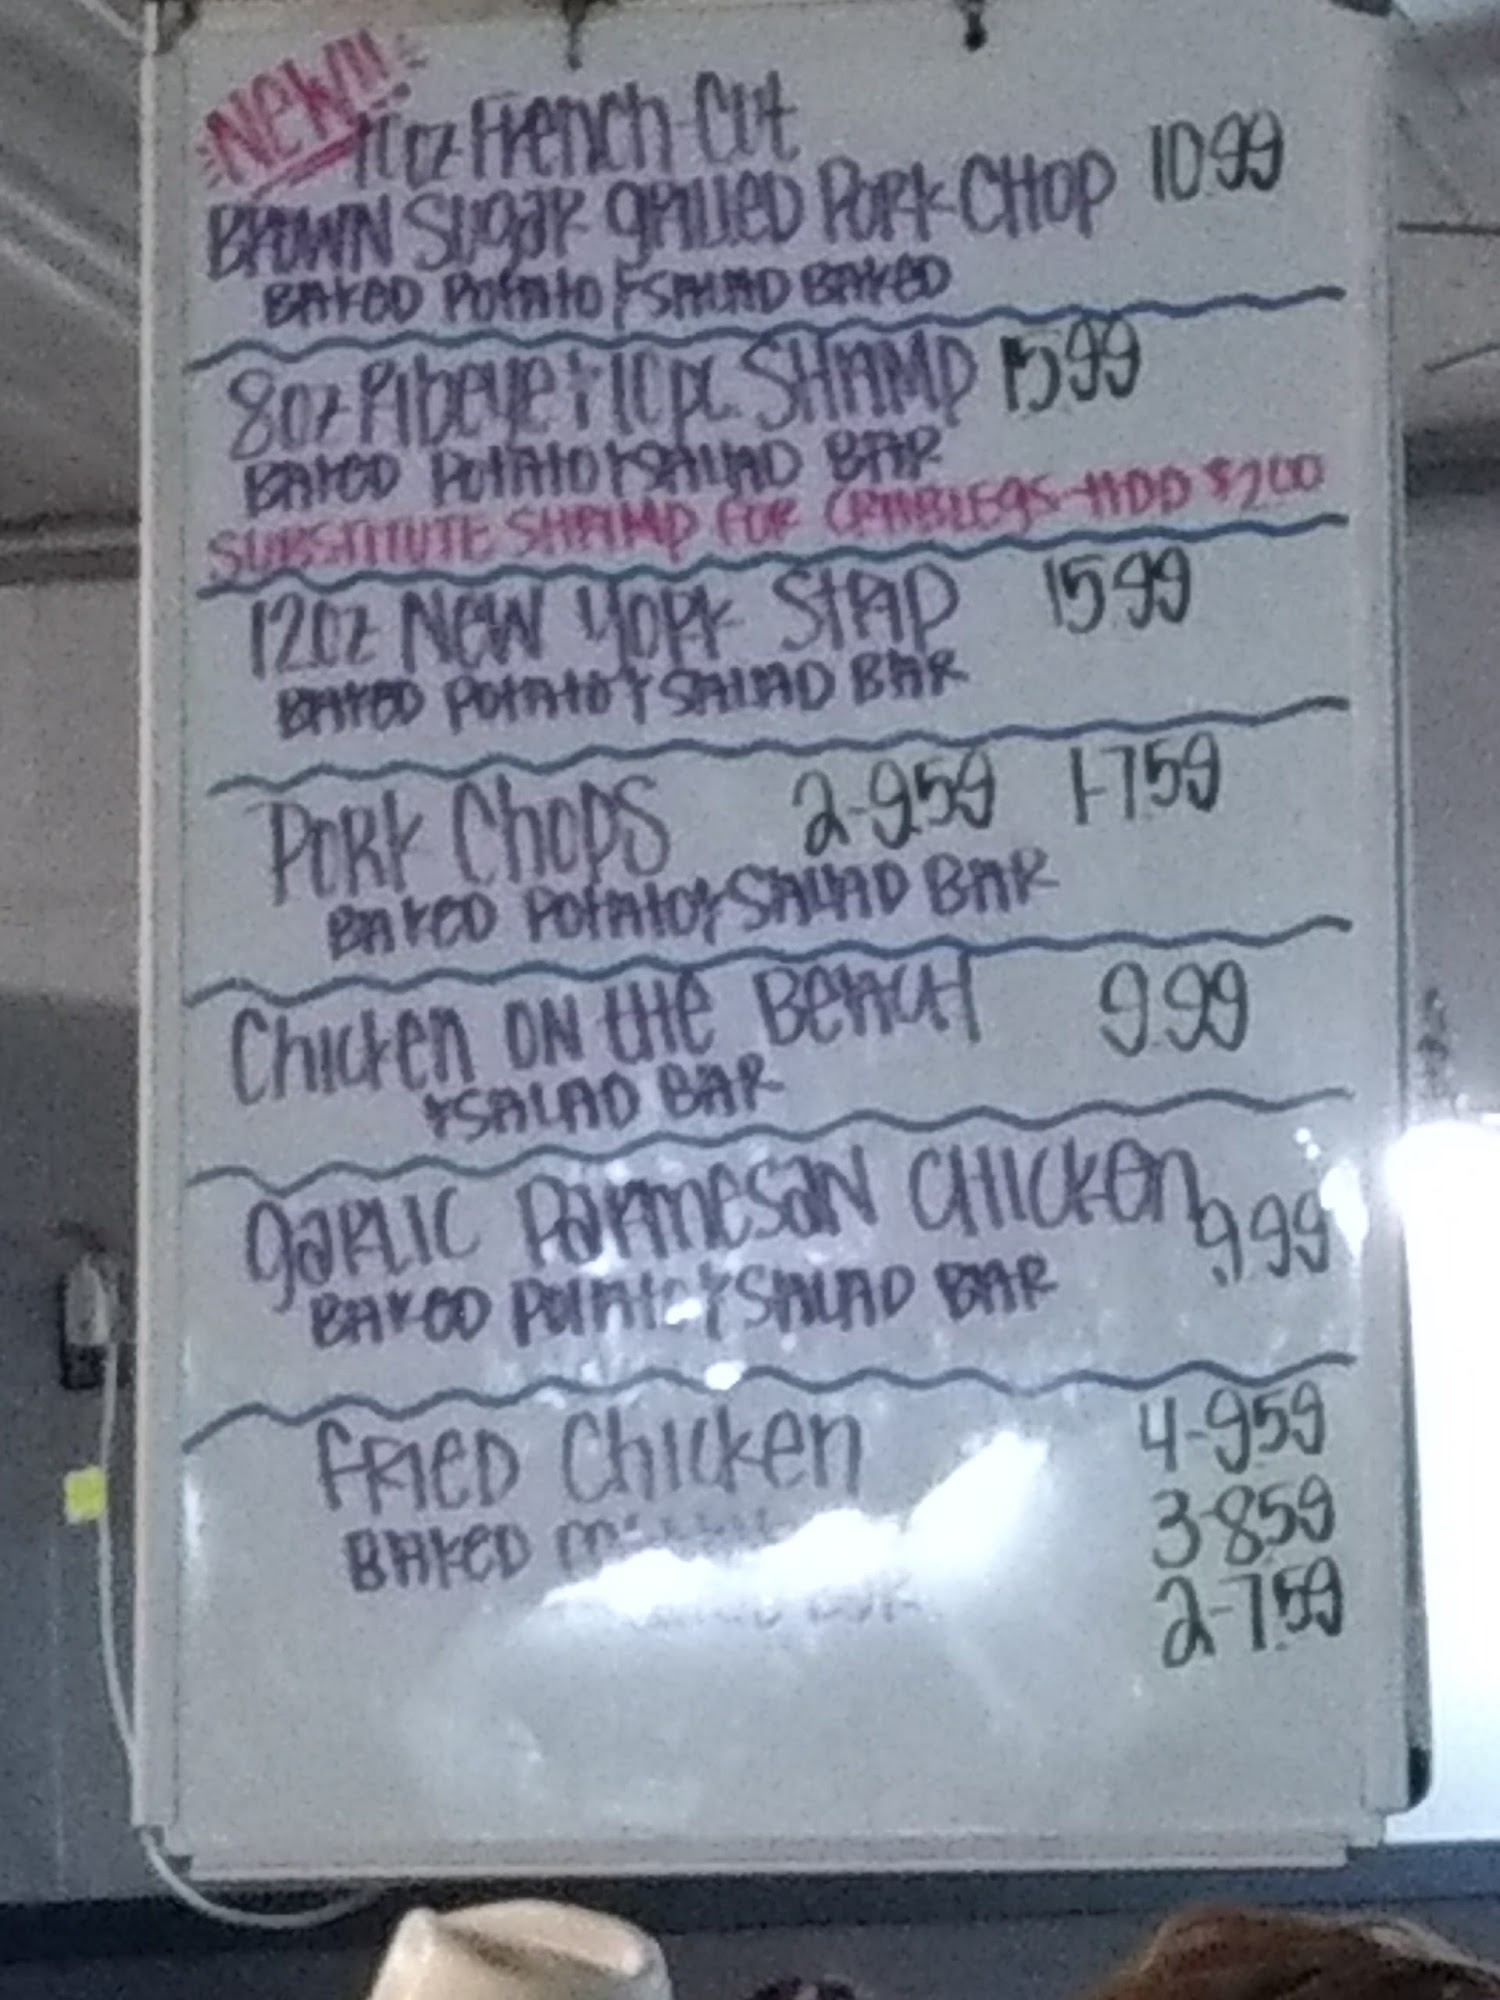 NEW!!!
10oz French Cut
BROWN Sugar grilled Pork CHOP 10.99
BAKED POTATO + SALAD BAKED
8oz Ribeye + 10pc. SHRIMP 15.99
BAKED POTATO + SALAD BAR
SUBSTITUTE SHRIMP FOR CRABLEGS-ADD $2.00
12oz NEW YORK STRIP 15.99
BAKED POTATO + SALAD BAR
PORK Chops 2-9.59 1-7.59
BAKED POTATO + SALAD BAR
Chicken ON the BeNACH 9.99
+ SALAD BAR
gaRLIC PARmesaN CHICKEN 9.99
BAKED POTATO + SALAD BAR
FRIED Chicken 4-9.59
3-8.59
BAKED
2-7.59